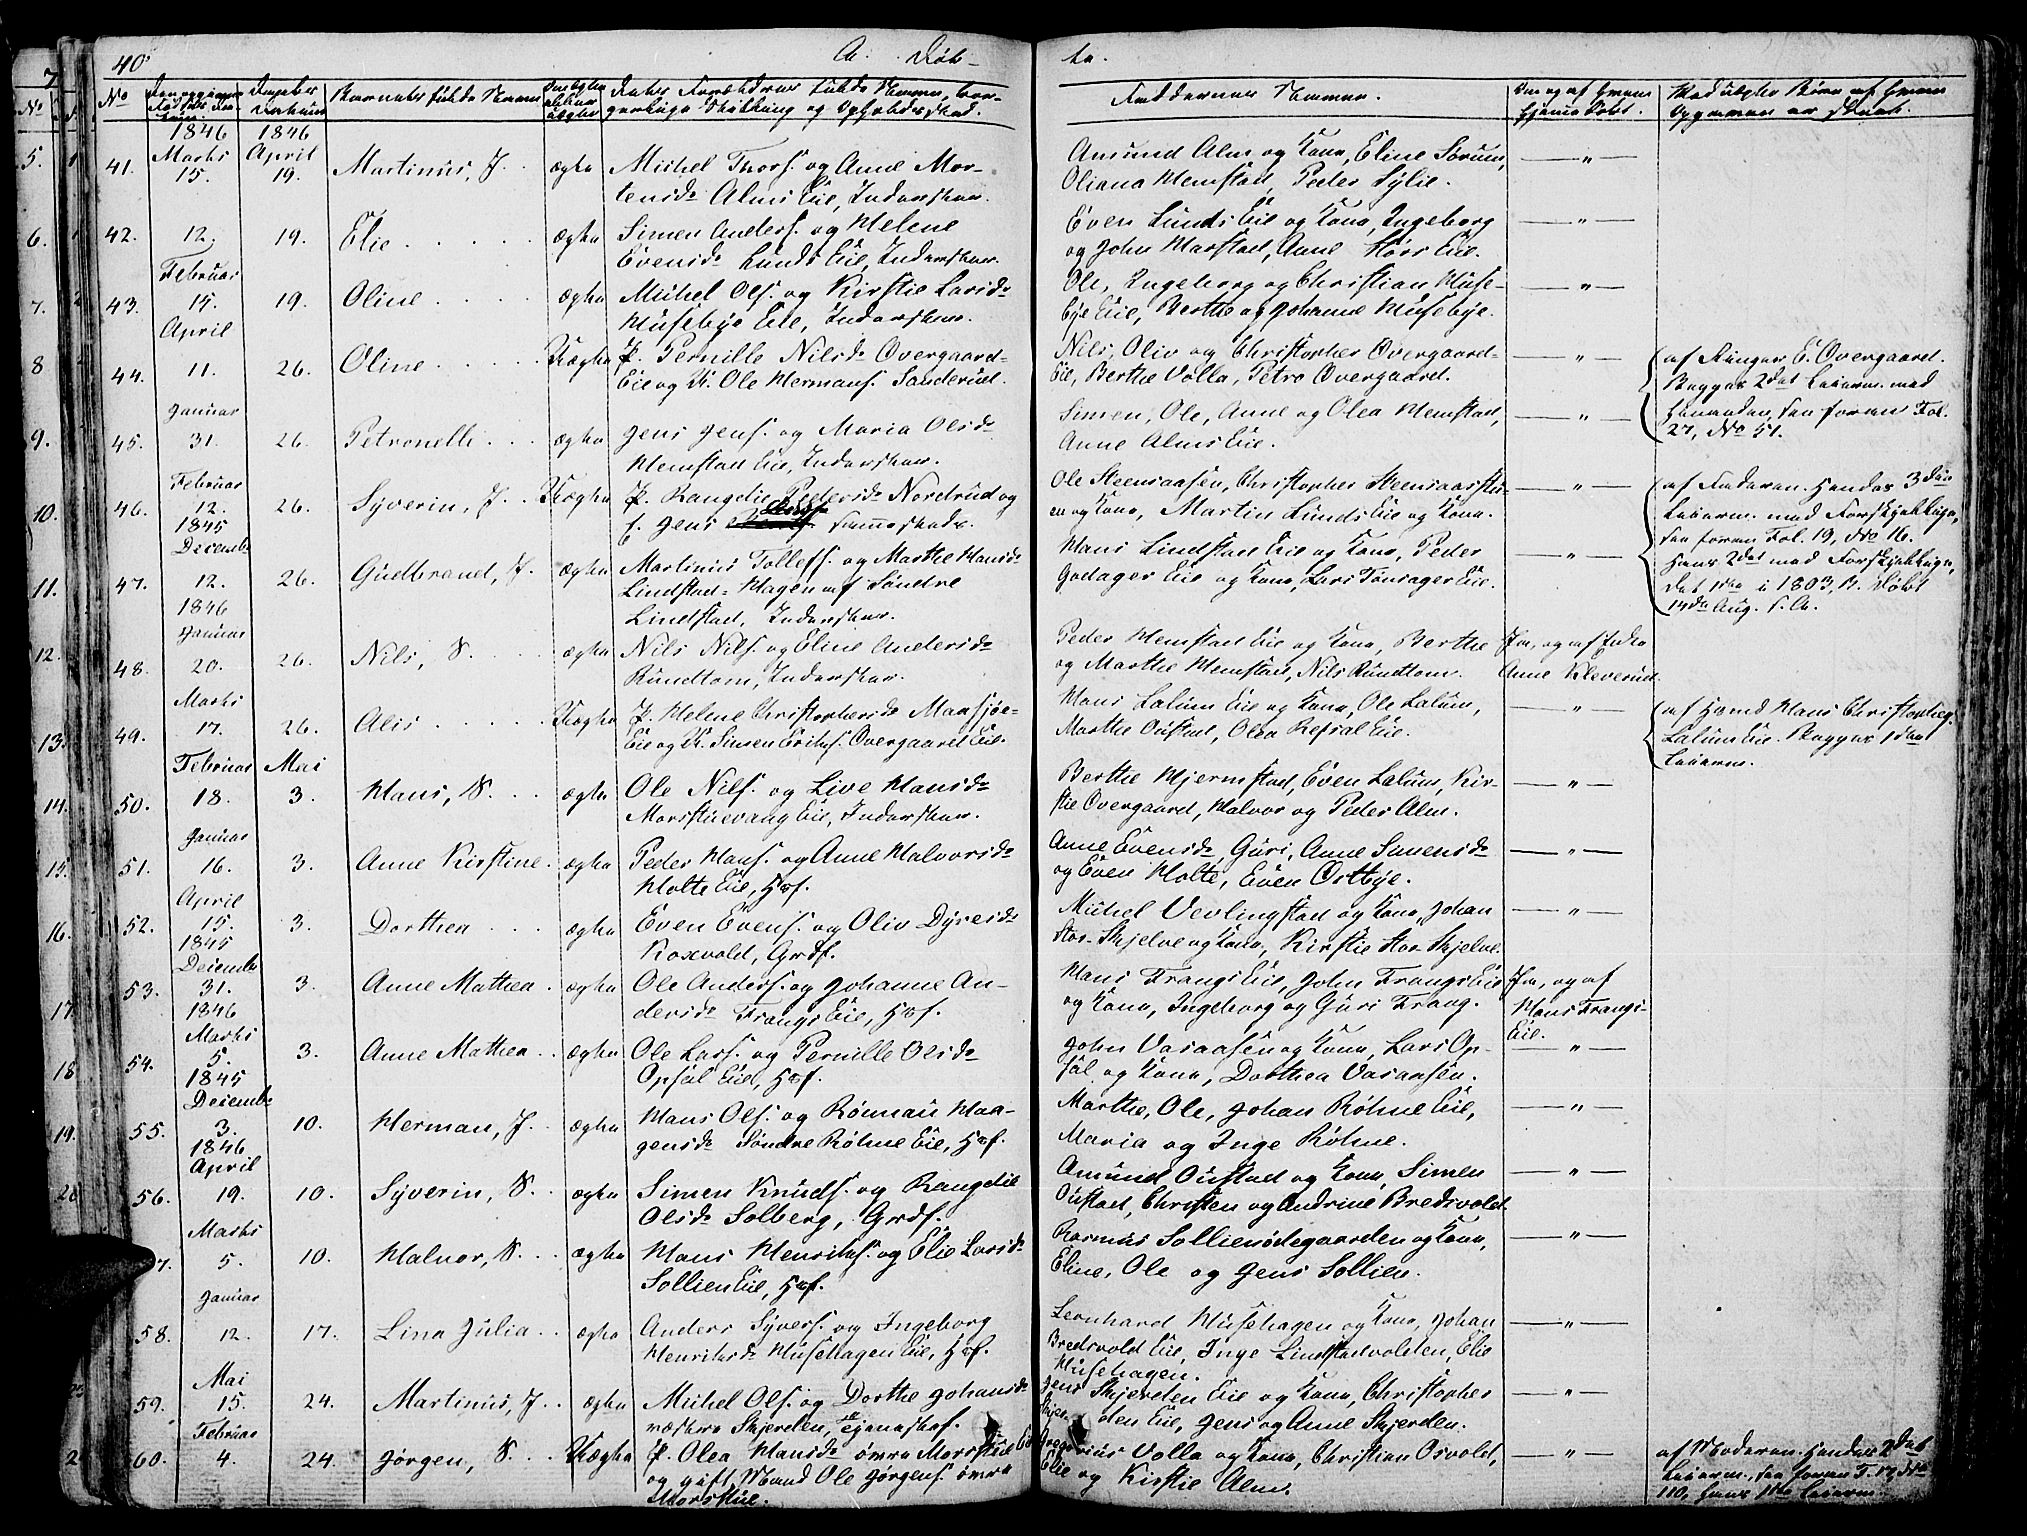 40.
A. Døb-
te.
No
Barnets fulde Navn
Faddernes Navne.
1846 1846
41. Marts 15. April 19. Martinus, J. ægte Michel Thors. og Anne Mor-
tensd. Alms Eie, Inderst
Amund Alm og Kone, Eline Sørum,
Oliana Hemstad, Peder Sylie. — " —
42. 12. 19. Elie ægte Simen Anders. og Helene
Evensd. Lunds Eie, Inderst
Even Lunds Eie og Kone, Ingeborg
og John Harstad, Anne Eie. — " —
43. Februar 15. 19. Oline ægte Michel Ols. og Kirstie Larsd.
Musebye Eie, Inderst
Ole, Ingeborg og Christian Muse-
bye Eie, Berthe og Johanne Musebye. — " —
44. April 11. 26. Oline Uægte P. Pernille Nilsd. Overgaard-
Eie og U. Ole Hermans. Sanderud.
Nils, Oliv og Christopher Overgaard-
Eie, Berthe Volla, Petra Overgaard. — " —
af E. Overgaard.
Begges 2det Leierm. med
hinanden, see foran Fol.
27, No 51.
45. Januar 31. 26. Petronelle ægte Jens Jens. og Maria Olsd.
Hemstad Eie, Inderst
Simen, Ole, Anne og Olea Hemstad,
Anne Alms Eie. — " —
46. Februar 12. 26. Syverin, J. Uægte P. Rangdie Pedersd. Nordrud og
Jens
Ole Steensaasen, Christopher
og Kone, Martin Lunds Eie og Kone. — " —
af Faderen. Hendes 3die
Leierm. med Forskjellige,
see foran Fol. 19, No 16.
Hans 2det med Forskjellige,
47. 1845 Decembr 12. 26. Gudbrand, J. ægte Martinus Tollefs. og Marthe Hansd.
Lindstad-Hagen af Søndre
Lindstad, Inderst
Hans Lindstad Eie og Kone, Peder
Godager Eie og Kone, Lars Tønsager Eie. — " —
48. 1846 Januar 20. 26. Nils, S. ægte Nils Nils. og Eline Andersd.
Rundtom, Inderst
Peder Hemstad Eie og Kone, Berthe
og Marthe Hemstad, Nils Rundtom.
Anne Kleverud.
49. Marts 17. 26. Alis Uægte P. Helene Christophersd.
Eie og U. Simen Eriks. Overgaard Eie.
Hans Lalum Eie og Kone, Ole Lalum,
Marthe Oustad, Olea Refsal Eie. — " —
Hans Christophers.
Lalum Eie. Begges 1ste
Leierm.
50. Februar 18. Mai 3. Hans, S. ægte Ole Nils. og Live Hansd.
Morstuevang Eie, Inderst
Berthe Hjermstad, Even Lalum, Kir-
stie Overgaard, Halvor og Peder Alm. — " —
51. Januar 16. 3. Anne Kirstine ægte Peder Hans. og Anne Halvorsd.
Holte Eie, Hsf.
Anne Evensd. Guri, Anne
og Even Holte, Even Ostbye. — " —
52. April 15. 3. Dorthea ægte Even Evens. og Oliv Dyresd.
Koxvold, Grdf.
Michel Vevlingstad og Kone, Johan
Stor-Skjelve og Kone, Kirstie Stor Skjelve. — " —
53. 1845 Decembr 31. 3. Anne Mathea ægte Ole Anders. og Johanne An-
dersd. Frangs Eie, Hsf.
Hans Frangs Eie, John Frangs Eie
og Kone, Ingeborg og Guri Frang.
og af
Hans Frangs-
Eie.
54. 1846 Marts 5. 3. Anne Mathea ægte Ole Lars. og Pernille Olsd.
Opsal Eie, Hsf.
John Vasaasen og Kone, Lars Op-
sal og Kone, Dorthea Vasaasen. — " —
55. 1845 Decembr 3. 10. Herman, J. ægte Hans Ols. og Rønnau Haa-
gensd. Søndre Røhne Eie, Hsf.
Marthe, Ole, Johan Røhne Eie,
Maria og Inge Røhne. — " —
56. 1846 April 19. 10. Syverin, S. ægte Simen Knuds. og Rangdie
Olsd. Solberg, Grdf.
Amund Oustad og Kone, Simen
Oustad, Christen og Andrine Bredsvold. — " —
7. Marts 5. 10. Halvor, S. ægte Hans Henriks. og Elie Larsd.
Sollien Eie, Hsf.
Rasmus Solliensødegaarden og Kone,
Eline, Ole og Jens Sollien. — " —
58. Januar 12. 17. Lina Julia ægte Anders Syvers. og Ingeborg
Henriksd. Musehagen Eie, Hsf.
Leonhard Musehagen og Kone, Johan
Bredsvold Eie, Inge Lindstadvolden, Elie
Musehagen. — " —
59. Mai 15. 24. Martinus, J. ægte Michel Ols. og Dorthe Johansd.
Skjerden,
Jens Skjerden Eie og Kone, Christopher
Skjerden Eie, Jens og Anne Skjerden. — " —
60. Februar 4. 24. Jørgen, S. Uægte P. Olea Hansd. øvre Morstue Eie
og gift Mand Ole Jørgens. øvre
Morstue.
Gregorius Volla og Kone, Christian Osvold,
Elie og Kirstie Alm. — " —
af Moderen. Hendes 2det
Leierm., see foran F. 17, No
110, hans 1ste Leierm.